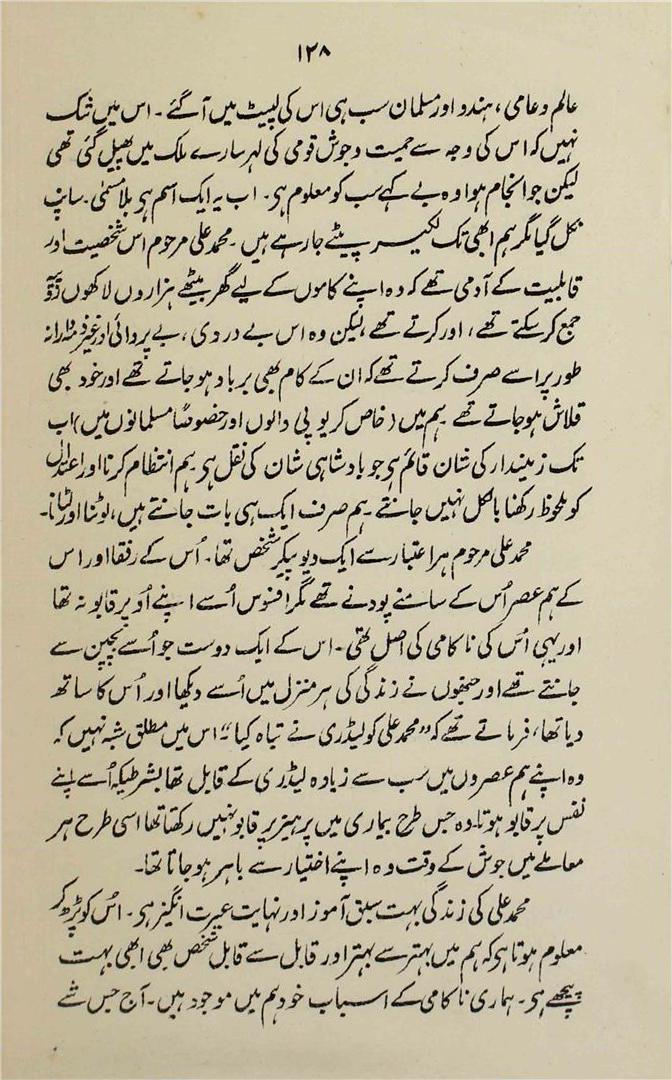 ۱۲۸
عالم و عامی، ہندو اور مسلمان سب ہی اس کی لپیٹ میں آ گئے ۔ اس میں شک
نہیں کہ اس کی وجہ سے حمیت و جوش قومی کی لہر سارے ملک میں پھیل گئی تھی
لیکن جو انجام ہوا وہ بے کہے سب کو معلوم ہی۔ اب یہ ایک اسم ہی بلا مسمّٰی ۔ سانپ
نکل گیا مگر ہم ابھی تک لکیر پیٹے جا رہے ہیں ۔ محمد علی مرحوم اس شخصیت اور
قابلیت کے آدمی تھے کہ وہ اپنے کاموں کے لیے گھر بیٹھے ہزاروں لاکھوں روپیہ
جمع کر سکتے تھے، اور کرتے تھے، لیکن وہ اس بے دردی، بے پروائی اور غیر ذمہ دارانہ
طور پر اسے صرف کرتے تھے کہ ان کے کام بھی برباد ہو جاتے تھے اور خود بھی
قلاش ہو جاتے تھے ۔ ہم میں (خاص کر یو پی والوں اور خصوصًا مسلمانوں میں) اب
تک زمیندار کی شان قائم ہی جو بادشاہی شان کی نقل ہی ہم انتظام کرنا اور اعتدال
کو ملحوظ رکھنا بالکل نہیں جانتے ۔ ہم صرف ایک ہی بات جانتے ہیں، لوٹنا اور لٹانا ۔
محمد علی مرحوم ہر اعتبار سے ایک دیو پیکر شخص تھا ۔ اُس کے رفقا اور اس
کے ہم عصر اُس کے سامنے پودنے تھے مگر افسوس اُسے اپنے اُوپر قابو نہ تھا
اور یہی اُس کی ناکامی کی اصل تھی ۔ اس کے ایک دوست جو اُسے بچپن سے
جانتے تھے اور جنھوں نے زندگی کی ہر منزل میں اُسے دیکھا اور اُس کا ساتھ
دیا تھا، فرماتے تھے کہ ”محمد علی کو لیڈری نے تباہ کیا“ اس میں مطلق شبہ نہیں کہ
وہ اپنے ہم عصروں میں سب سے زیادہ لیڈری کے قابل تھا بشرطیکہ اُسے اپنے
نفس پر قابو ہوتا ۔ وہ جس طرح بیماری میں پرہیز پر قابو نہیں رکھتا تھا اسی طرح ہر
معاملے میں جوش کے وقت وہ اپنے اختیار سے باہر ہو جاتا تھا ۔
محمد علی کی زندگی بہت سبق آموز اور نہایت عبرت انگیز ہی ۔ اُس کو پڑھ کر
معلوم ہوتا ہی کہ ہم میں بہتر سے بہتر اور قابل سے قابل شخص بھی ابھی بہت
پیچھے ہی ۔ ہماری ناکامی کے اسباب خود ہم میں موجود ہیں ۔ آج جس شے